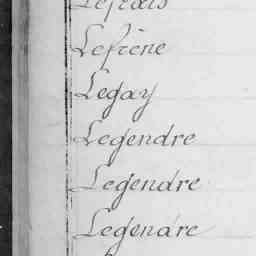 Lefrène
Legay
Legendre
Legendre
Legendre